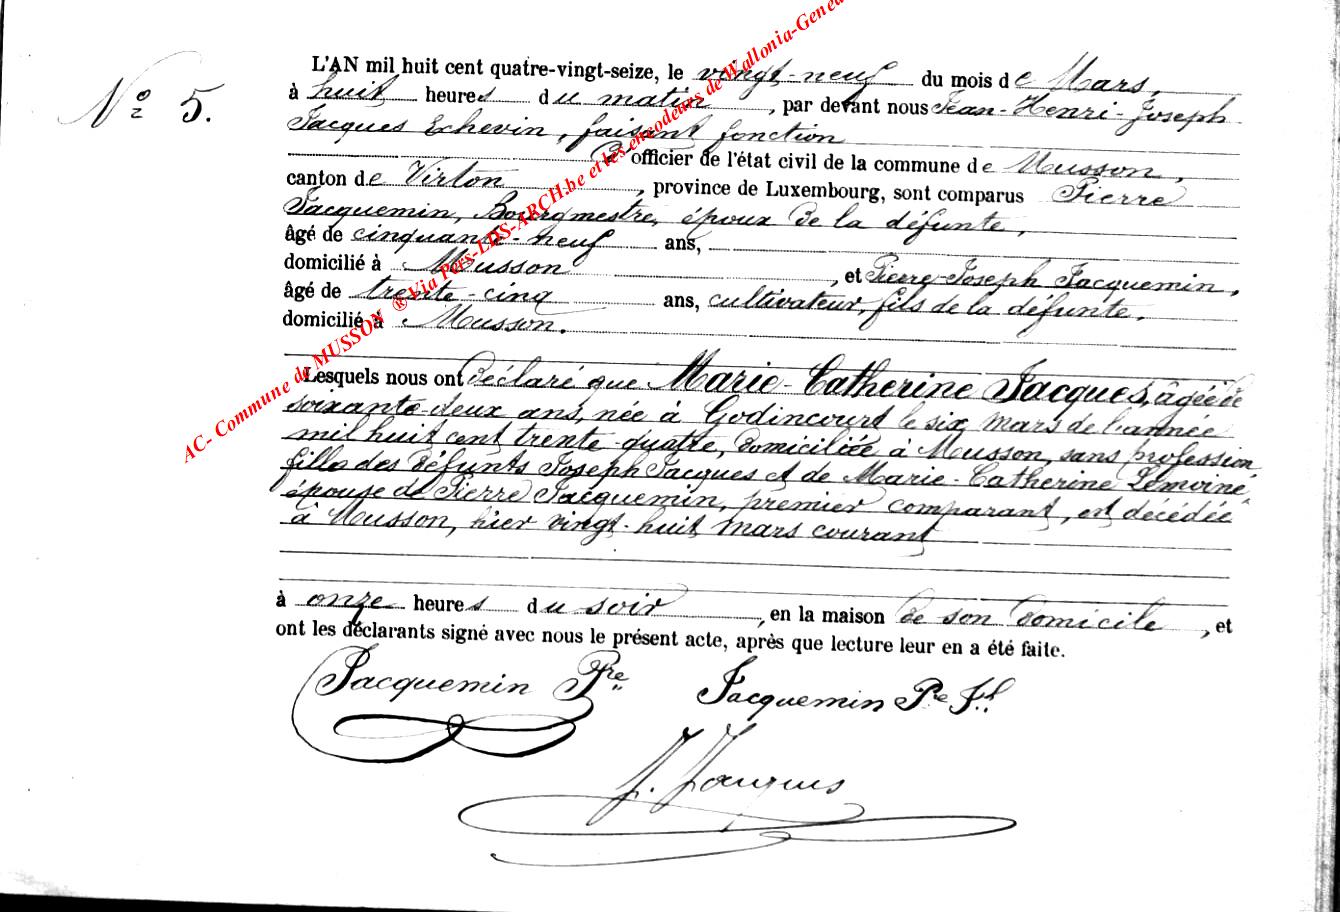 L'AN mil huit cent quatre-vingt-seize, le vingt-neuf du mois de Mars,
N° 5.
à huit heures du matin, par devant nous Jean-Henri-Joseph
Jacques Echevin, faisant fonction
d'officier de l'état civil de la commune de Musson,
canton de Virton, province de Luxembourg, sont comparus Pierre
Jacquemin, Bourgmestre, époux de la défunte,
âgé de cinquante-neuf ans,
domicilié à Musson, et Pierre-Joseph Jacquemin,
âgé de trente-cinq ans, cultivateur, fils de la défunte,
domicilié à Musson.
Lesquels nous ont déclaré que Marie-Catherine Jacques, âgée de
soixante-deux ans, née à Godincourt le six mars de l'année
mil huit cent trente-quatre, domiciliée à Musson, sans profession
fille des défunts Joseph Jacques et de Marie-Catherine Lemoine,
épouse de Pierre Jacquemin, premier comparant, est décédée
à Musson, hier vingt-huit mars courant
à onze heures du soir, en la maison de son domicile, et
ont les déclarants signé avec nous le présent acte, après que lecture leur en a été faite.
Jacquemin Pre Jacquemin Pre Jh
J. Jacques
AC- Commune de MUSSON ® Via Pers-LDS-ARCH.be et les encodeurs de Wallonia-Genea